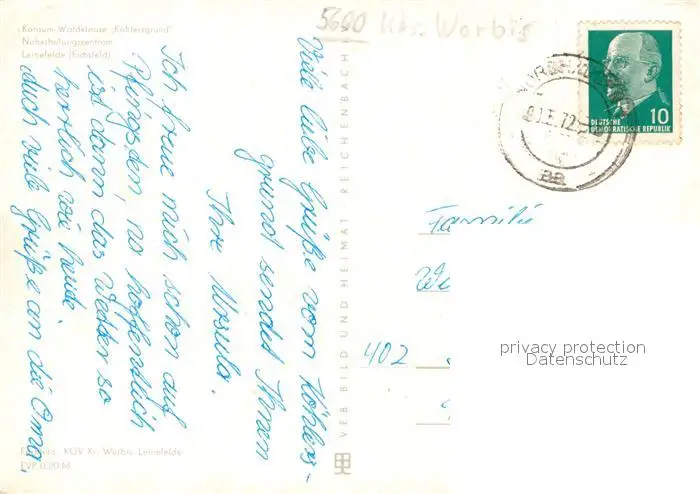 Konsum-Waldklause „Köhlersgrund"
Naherholungszentrum
Leinefelde (Eichsfeld)
5600 Krs. Worbis
Viele liebe Grüße vom Köhlers-
grund sendet Ihnen
Ihre Ursula.
Ich freue mich schon auf
Pfingsten, wo hoffentlich
ist dann das Wetter so
herrlich wie heute.
Auch viele Grüße an die Oma.
VEB BILD UND HEIMAT REICHENBACH
KGV Kr. Worbis, Leinefelde
EVP 0,20 M
72
BA
10
DEUTSCHE
DEMOKRATISCHE REPUBLIK
Familie
402
privacy protection
Datenschutz